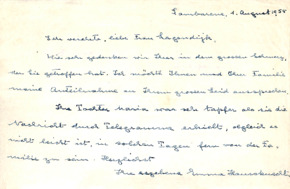 Tamborene, 1. August 1958
Sehr verehrte, liebe Frau Lagendijk.
Wie sehr gedenken wir Ihrer in dem grossen Schmerz,
der Sie getroffen hat. Ich möchte Ihnen und Ihrer Familie
meine Anteilnahme an Ihrem grossen Leid aussprechen.
Ihre Tochter Maria war sehr tapfer als sie die
Nachricht durch Telegramm erhielt, obgleich es
nicht leicht ist, in solchen Tagen fern von der Fa-
milie zu sein. Herzlichst
Ihre ergebene Emma